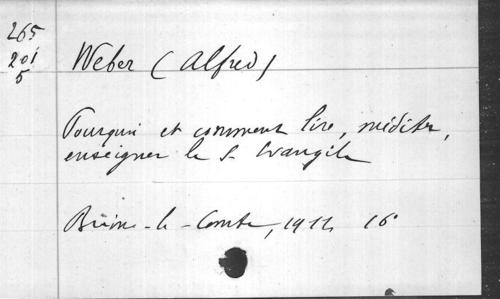 265
201
5
Weber (Alfred)
Pourquoi et comment lire, méditer,
enseigner le S. Evangile
Braine-le-Comte, 1912 16°